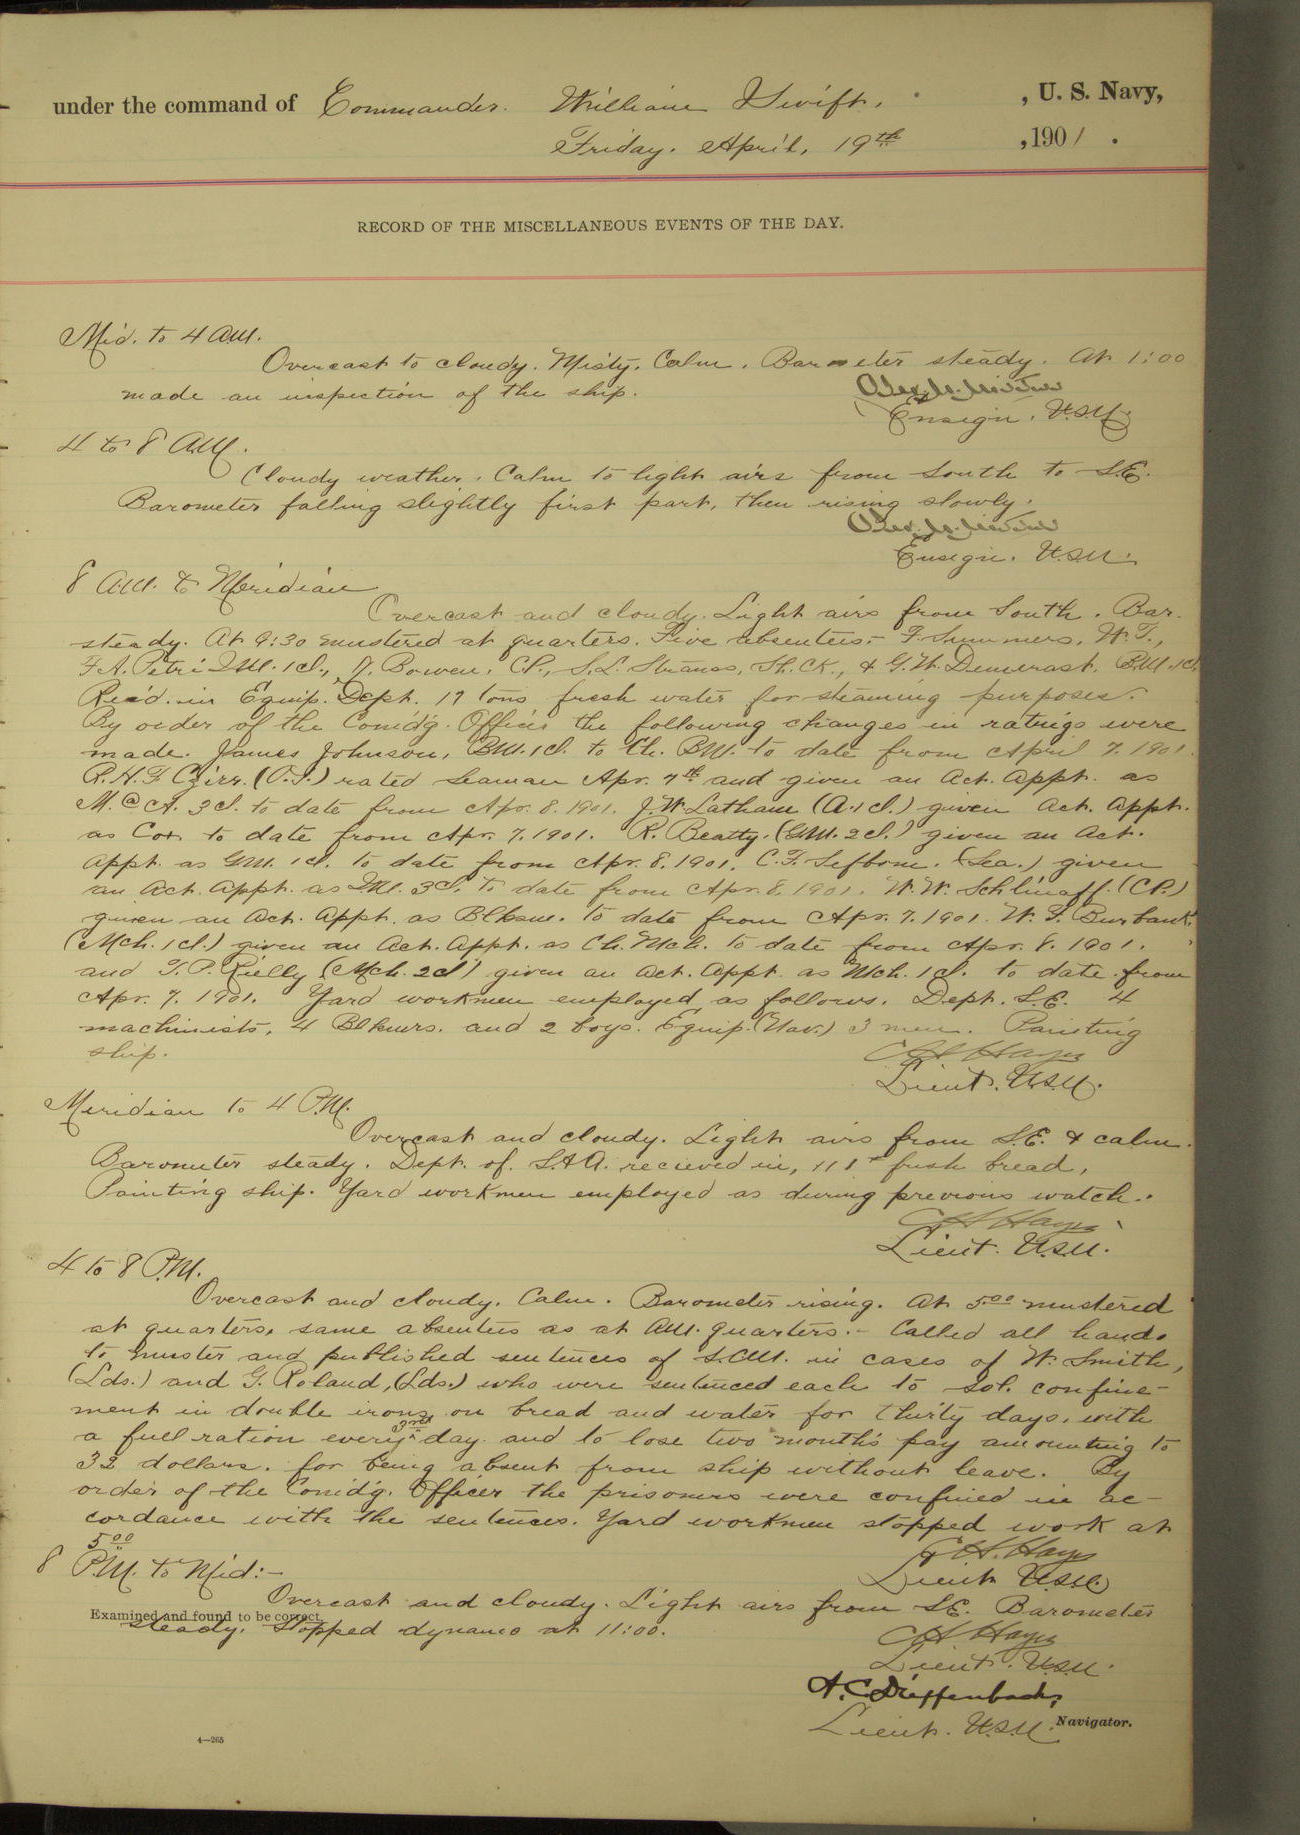 under the command of Commander. William Swift. , U. S. Navy,
Friday. April, 19th ,1901.
RECORD OF THE MISCELLANEOUS EVENTS OF THE DAY.
Mid. to 4 A.M.
Overcast to cloudy. Misty. Calm. Barometer steady. At 1:00
made an inspection of the ship.
Ensign. U.S.N.
4 to 8 A.M.
Cloudy weather. Calm to light airs from South to S.E.
Barometer falling slightly first part, then rising slowly.
Ensign. U.S.N.
8 A.M. to Meridian
Overcast and cloudy. Light airs from South. Bar.
steady. At 9:30 mustered at quarters. Five absentees:- F. Summers, W.T.,
F.A. Petri M. 1cl., Bowen, C.P., S.L. Strauss, Sh. Ck., & G.W. Demerast. B.M. 1cl.
Rec'd. in Equip. Dept. 17 tons fresh water for steaming purposes.
By order of the Comd'g. Officer the following changes in ratings were
made. James Johnson, B.M. 1cl. to Ch. B.M. to date from April 7. 1901.
R.H.F. (O.S.) rated Seaman Apr. 7th and given an Act. Appt. as
M. @ A. 3cl. to date from Apr. 8. 1901. J.W. Latham (A. 1cl.) given Act. Appt.
as Cox. to date from Apr. 7. 1901. R. Beatty. (G.M. 2cl.) given an Act.
Appt. as G.M. 1cl. to date from Apr. 8. 1901. C.F. (Sea.) given
an Act. Appt. as 3cl. to date from Apr. 8. 1901. W.W. (C.P.)
given an Act. Appt. as Blksm. to date from Apr. 7. 1901. W.F. Burbank.
(Mch. 1cl.) given an Act. Appt. as Ch. Mch. to date from Apr. 8. 1901.
and T.P. Rielly (Mch. 2cl) given an Act. Appt. as Mch. 1cl. to date from
Apr. 7. 1901. Yard workmen employed as follows. Dept. S.E. 4
machinists, 4 and 2 boys. Equip. (Nav.) 3 men. Painting
ship.
C H Hayes
Lieut. U.S.N.
Meridian to 4 P.M.
Overcast and cloudy. Light airs from S.E. & calm.
Barometer steady. Dept. of. S.&A. recieved in, 111# fresh bread.
Painting ship. Yard workmen employed as during previous watch.
C H Hayes
Lieut. U.S.N.
4 to 8 P.M.
Overcast and cloudy. Calm. Barometer rising. At 5.00 mustered
at quarters, same absentees as at A.M. quarters.- Called all hands
to muster and published sentences of S.C.M. in cases of W. Smith,
(Lds.) and G. Roland, (Lds.) who were sentenced each to sol. confine-
ment in double irons on bread and water for thirty days, with
a full ration every 3rd day and to lose two month's pay amounting to
32 dollars. for being absent from ship without leave. By
order of the Comd'g. Officer the prisoners were confined in ac-
cordance with the sentences. Yard workmen stopped work at
5.00
C H. Hayes
Lieut U.S.N.
8 P.M. to Mid:-
Overcast and cloudy. Light airs from S.E. Barometer
Examined and found to be correct.
steady. Stopped dynamo at 11:00.
C H. Hayes
Lieut. U.S.N.
A.C. Dieffenbach,
Lieut. U.S.N. Navigator.
4—265